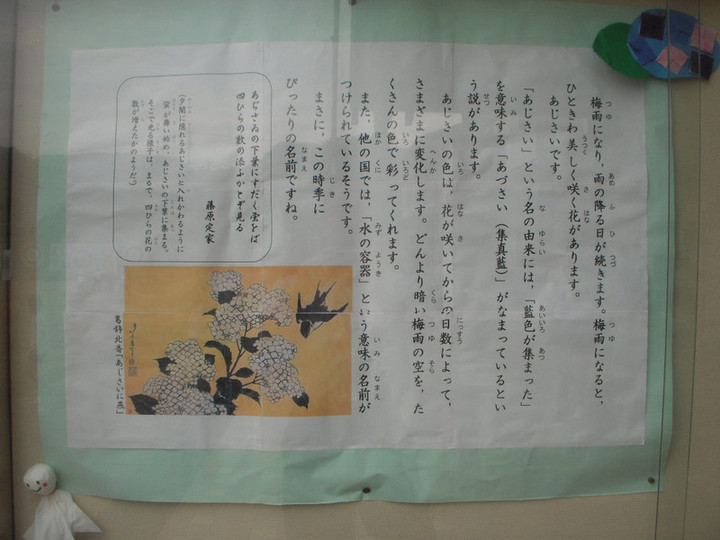 梅雨になり、雨の降る日が続きます。梅雨になると、
ひときわ美しく咲く花があります。
あじさいです。
「あじさい」という名の由来には、「藍色が集まった」
を意味する「あづさい（集真藍）」がなまっているとい
う説があります。
あじさいの色は、花が咲いてからの日数によって、
さまざまに変化します。どんより暗い梅雨の空を、た
くさんの色で彩ってくれます。
また、他の国では、「水の容器」という意味の名前が
つけられているそうです。
まさに、この時季に
ぴったりの名前ですね。
あぢさゐの下葉にすだく蛍をば
四ひらの数の添ふかとぞ見る
藤原定家
（夕闇に隠れるあじさいと入れかわるように
蛍が舞い始め、あじさいの下葉に集まる。
そこで光る様子は、まるで、四ひらの花の
数が増えたかのようだ。）
葛飾北斎「あじさいに燕」